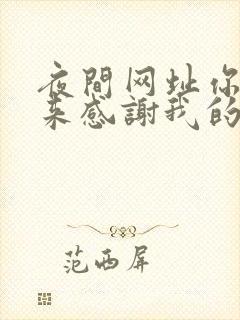 夜間网址你
来感謝我的
范西屏